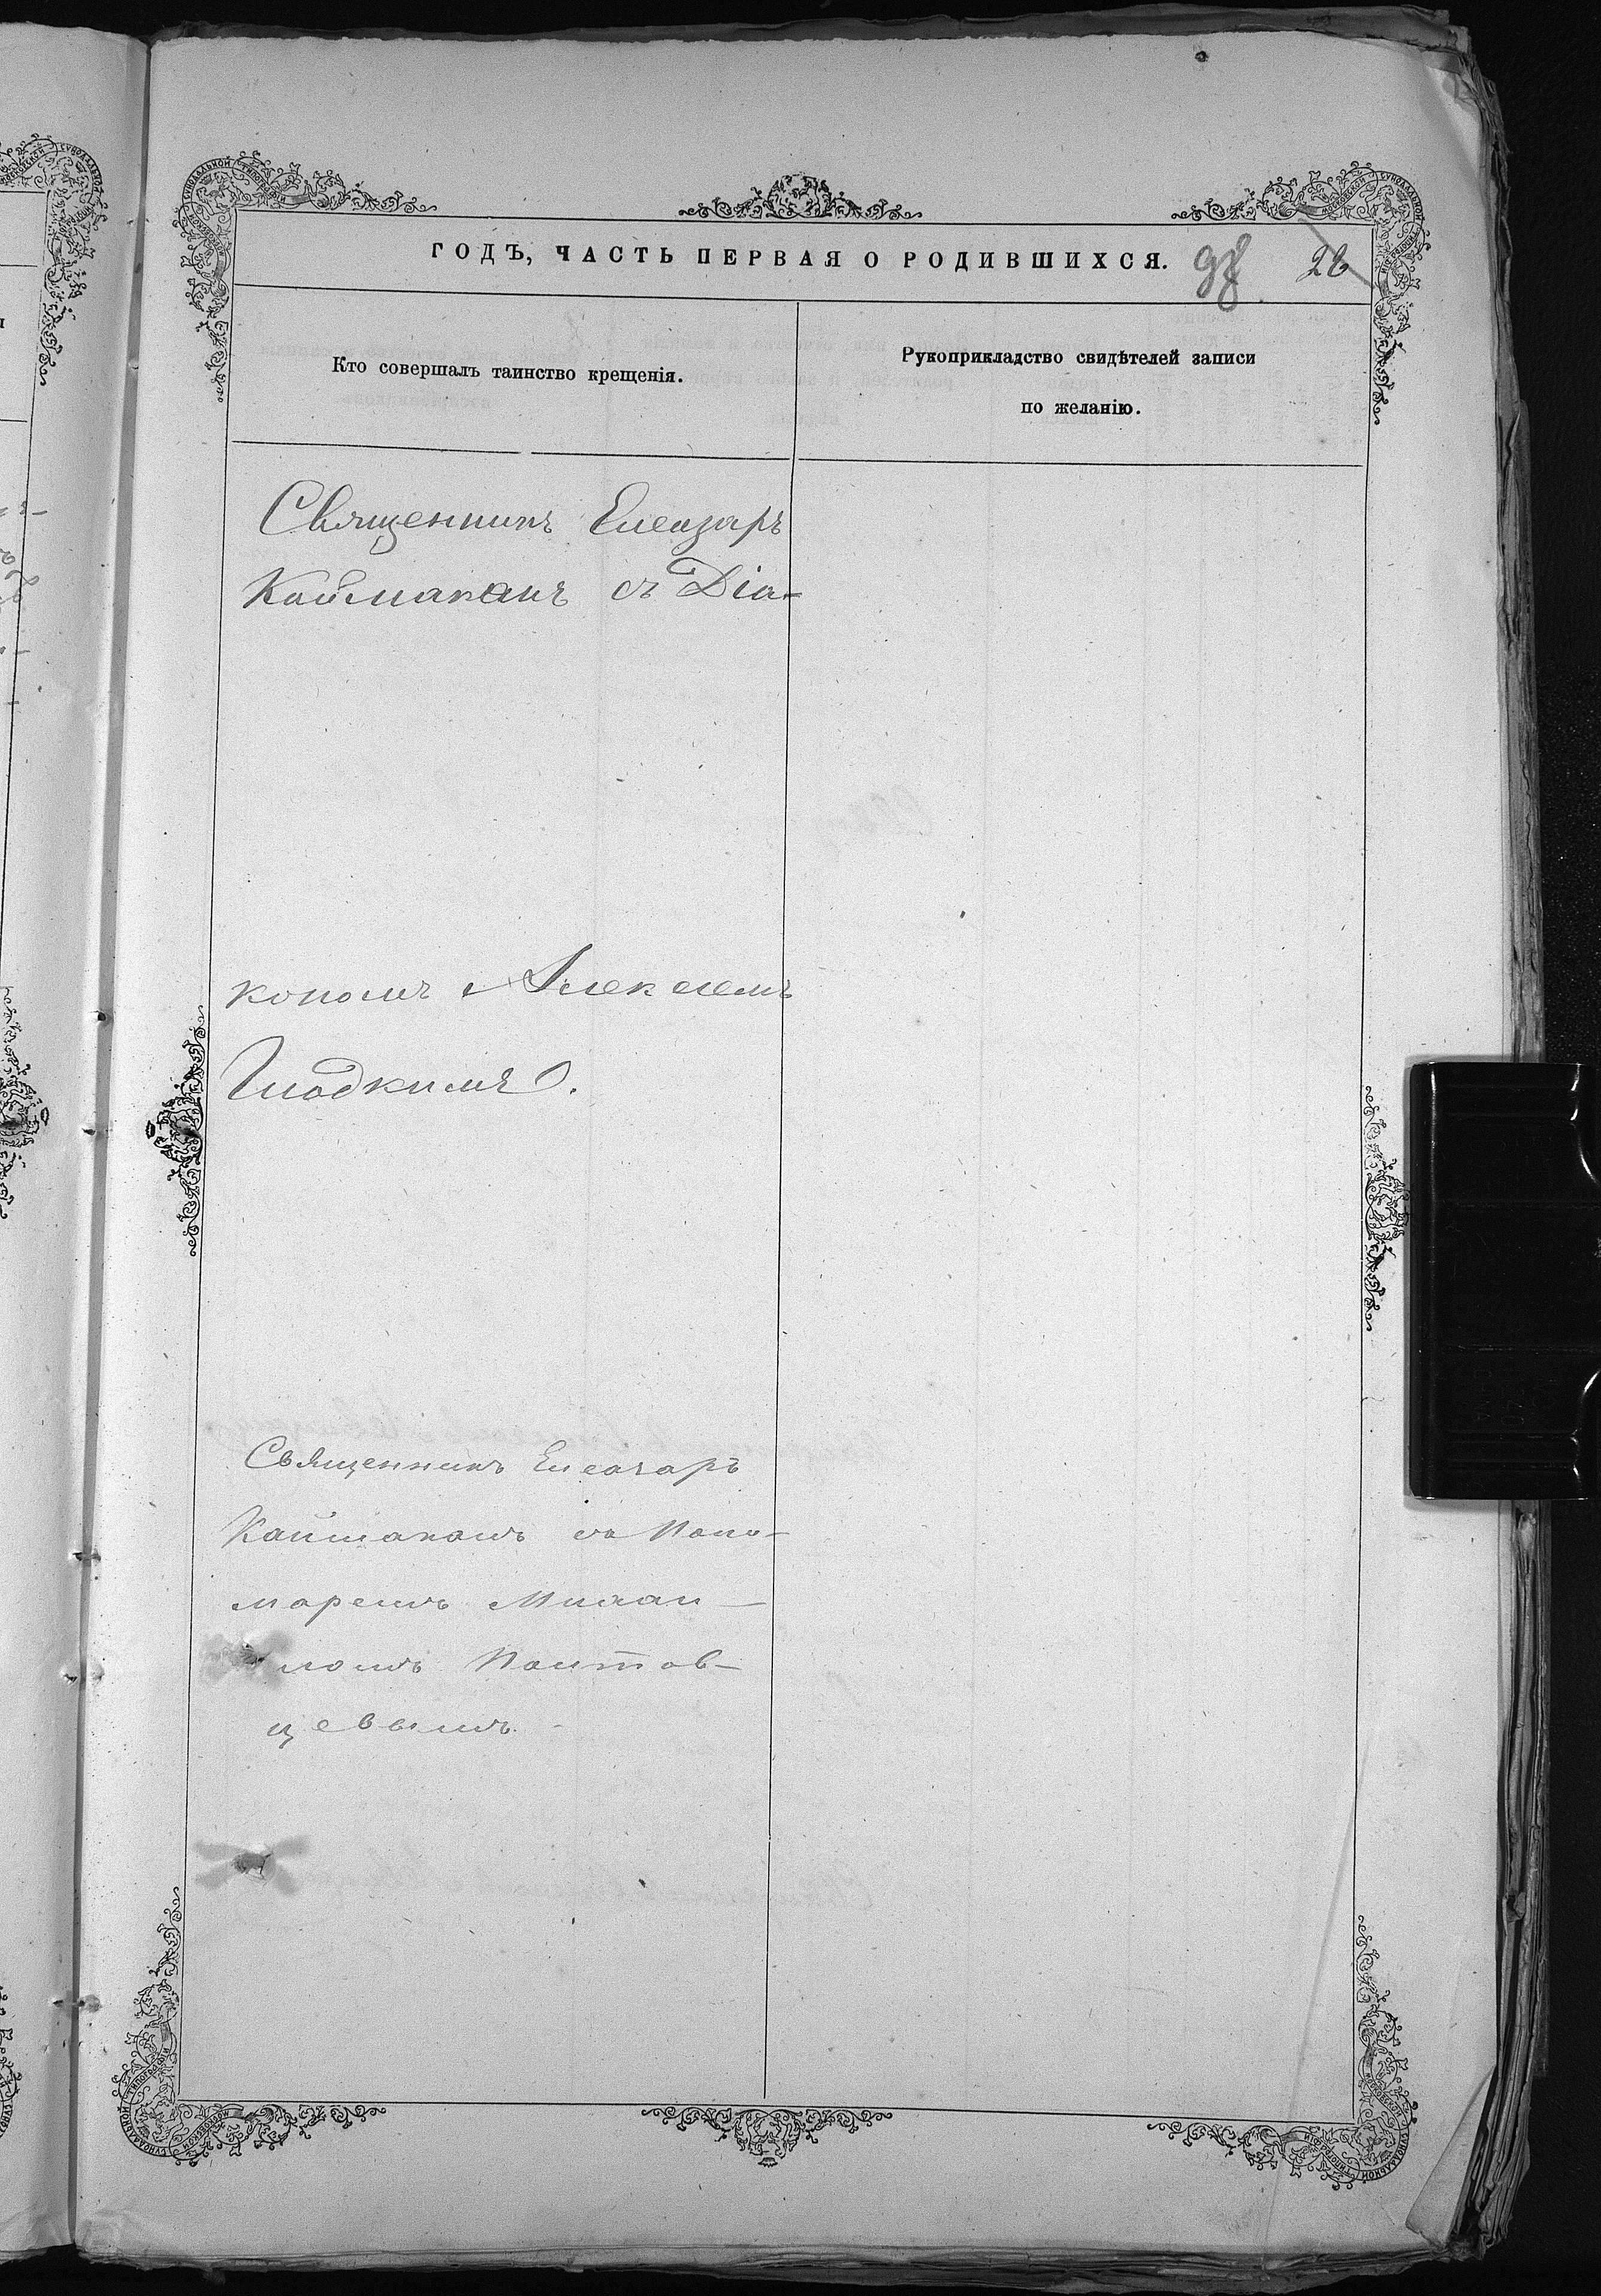 ГОДЪ, ЧАСТЬ ПЕРВАЯ О РОДИВШИХСЯ. 98 26
Кто совершалъ таинство крещенія.
Рукоприкладство свидѣтелей записи
по желанію.
Священникъ Елеазаръ
Каймаканъ съ Діа-
кономъ Алексеемъ
Гладкимъ.
Священникъ Елеазаръ
Каймаканъ съ Поно-
маремъ Михаи-
ломъ Полтав-
цевымъ.